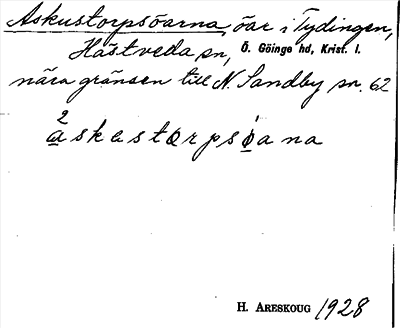 Askustorpsöarna, öar i Tydingen,
Hästveda sn, Ö. Göinge hd, Krist. l.
nära gränsen till N. Sandby sn. 62
2
askestorpsöana
H. ARESKOUG 1928